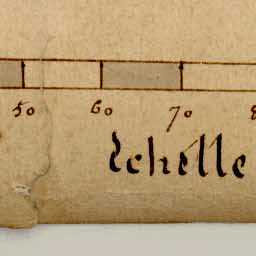 50 60 70 8
Echelle